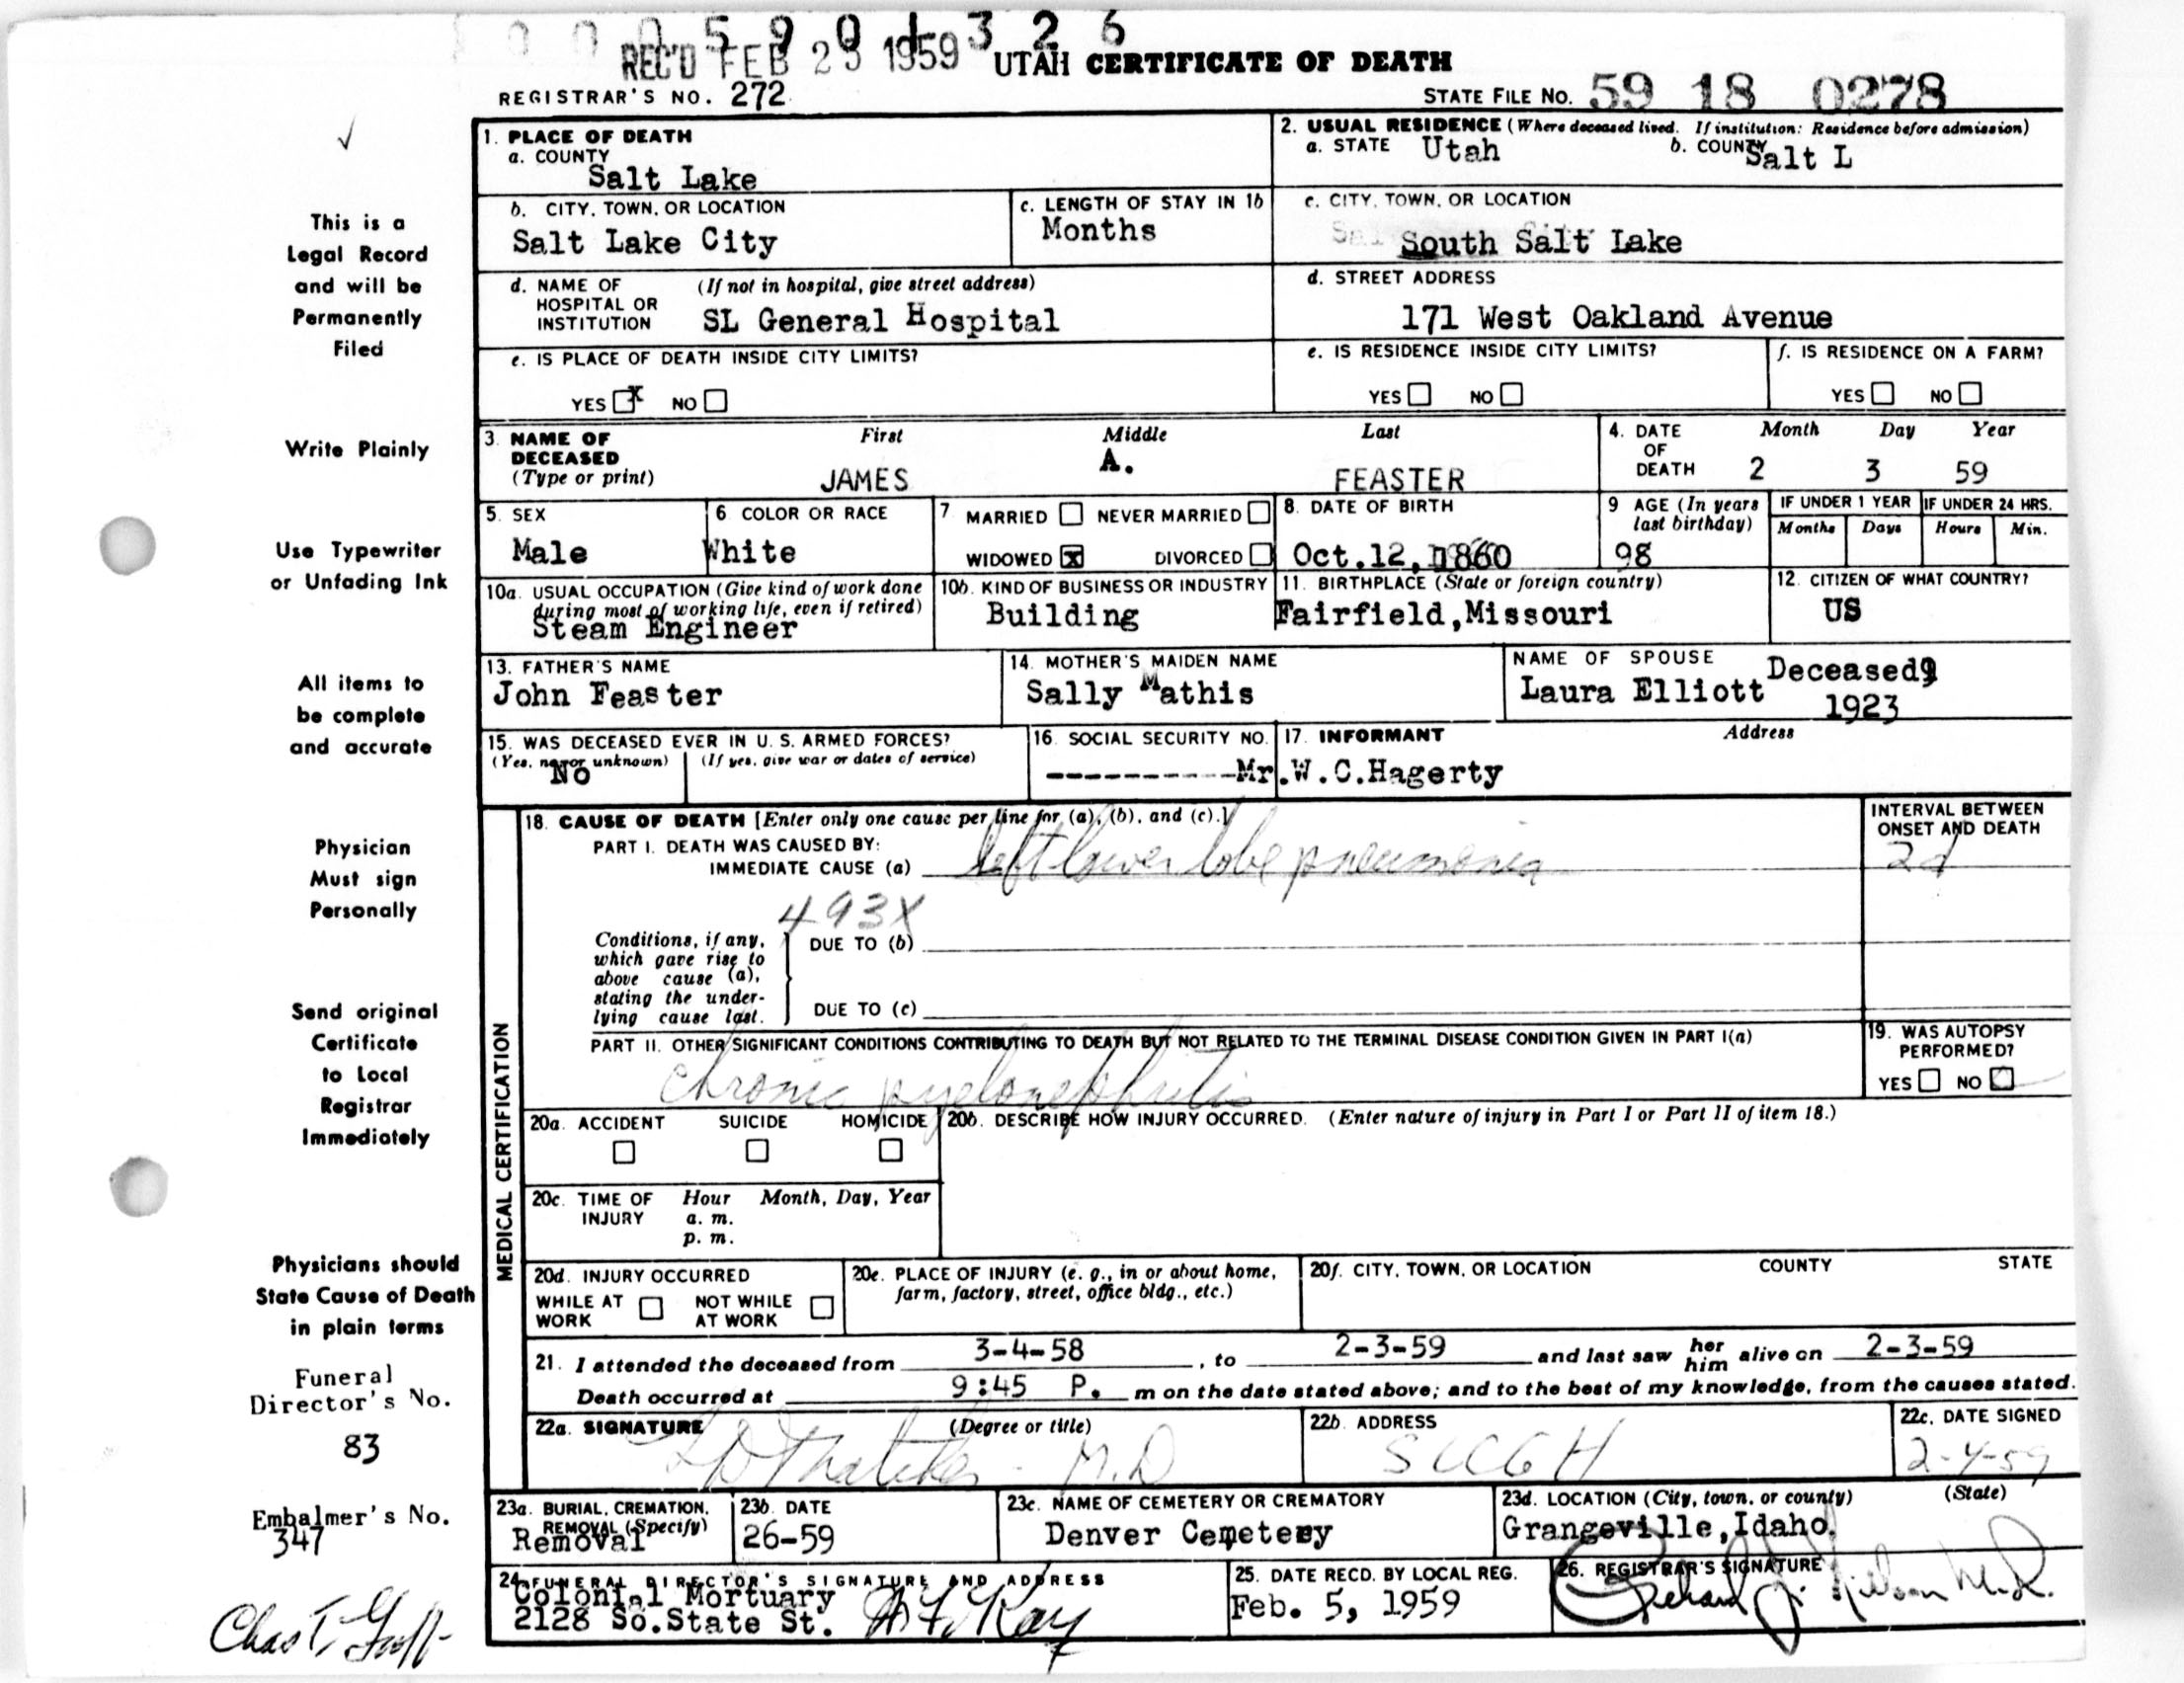 0 0 0 5 9 0 1 3 2 6
REC'D FEB 25 1959 UTAH CERTIFICATE OF DEATH
REGISTRAR'S NO. 272
STATE FILE NO. 59 18 0278
This is a
Legal Record
and will be
Permanently
Filed
Write Plainly
Use Typewriter
or Unfading Ink
All items to
be complete
and accurate
Physician
Must sign
Personally
Send original
Certificate
to Local
Registrar
Immediately
Physicians should
State Cause of Death
in plain terms
Funeral
Director's No.
83
Embalmer's No.
347
1. PLACE OF DEATH
a. COUNTY
Salt Lake
2. USUAL RESIDENCE (Where deceased lived. If institution: Residence before admission)
a. STATE Utah b. COUNTY Salt L
b. CITY, TOWN, OR LOCATION
Salt Lake City
c. LENGTH OF STAY IN 1b
Months
c. CITY, TOWN, OR LOCATION
South Salt Lake
d. NAME OF (If not in hospital, give street address)
HOSPITAL OR
INSTITUTION SL General Hospital
d. STREET ADDRESS
171 West Oakland Avenue
e. IS PLACE OF DEATH INSIDE CITY LIMITS?
YES X NO
e. IS RESIDENCE INSIDE CITY LIMITS?
YES NO
f. IS RESIDENCE ON A FARM?
YES NO
3. NAME OF DECEASED (Type or print)
First Middle Last
JAMES A. FEASTER
4. DATE OF DEATH
Month Day Year
2 3 59
5. SEX
Male
6. COLOR OR RACE
White
7. MARRIED NEVER MARRIED
WIDOWED X DIVORCED
8. DATE OF BIRTH
Oct.12, 1860
9 AGE (In years last birthday)
98
IF UNDER 1 YEAR IF UNDER 24 HRS.
Months Days Hours Min.
10a. USUAL OCCUPATION (Give kind of work done
during most of working life, even if retired)
Steam Engineer
10b. KIND OF BUSINESS OR INDUSTRY
Building
11. BIRTHPLACE (State or foreign country)
Fairfield,Missouri
12. CITIZEN OF WHAT COUNTRY?
US
13. FATHER'S NAME
John Feaster
14. MOTHER'S MAIDEN NAME
Sally Mathis
NAME OF SPOUSE
Laura Elliott Deceased
1923
15. WAS DECEASED EVER IN U. S. ARMED FORCES?
(Yes, no, or unknown) (If yes, give war or dates of service)
No
16. SOCIAL SECURITY NO.
----------
17. INFORMANT Address
Mr.W.C.Hagerty
MEDICAL CERTIFICATION
18. CAUSE OF DEATH [Enter only one cause per line for (a), (b), and (c).]
PART I. DEATH WAS CAUSED BY:
IMMEDIATE CAUSE (a) left lower lobe pneumonia
INTERVAL BETWEEN
ONSET AND DEATH
2d
493X
Conditions, if any,
which gave rise to
above cause (a),
stating the under-
lying cause last.
DUE TO (b)
DUE TO (c)
PART II. OTHER SIGNIFICANT CONDITIONS CONTRIBUTING TO DEATH BUT NOT RELATED TO THE TERMINAL DISEASE CONDITION GIVEN IN PART I(a)
chronic pyelonephritis
19. WAS AUTOPSY
PERFORMED?
YES NO
20a. ACCIDENT SUICIDE HOMICIDE
20b. DESCRIBE HOW INJURY OCCURRED. (Enter nature of injury in Part I or Part II of item 18.)
20c. TIME OF INJURY
Hour Month, Day, Year
a. m.
p. m.
20d. INJURY OCCURRED
WHILE AT WORK NOT WHILE AT WORK
20e. PLACE OF INJURY (e. g., in or about home,
farm, factory, street, office bldg., etc.)
20f. CITY, TOWN, OR LOCATION COUNTY STATE
21. I attended the deceased from 3-4-58, to 2-3-59 and last saw her him alive on 2-3-59
Death occurred at 9:45 P. m on the date stated above; and to the best of my knowledge, from the causes stated.
22a. SIGNATURE (Degree or title)
Thatcher M.D
22b. ADDRESS
SLCGH
22c. DATE SIGNED
2-4-59
23a. BURIAL, CREMATION,
REMOVAL (Specify)
Removal
23b. DATE
26-59
23c. NAME OF CEMETERY OR CREMATORY
Denver Cemetery
23d. LOCATION (City, town, or county) (State)
Grangeville,Idaho.
24. FUNERAL DIRECTOR'S SIGNATURE AND ADDRESS
Colonial Mortuary
2128 So.State St. Kay
25. DATE RECD. BY LOCAL REG.
Feb. 5, 1959
26. REGISTRAR'S SIGNATURE
Richard J. Nielson M.D.
Chas T.